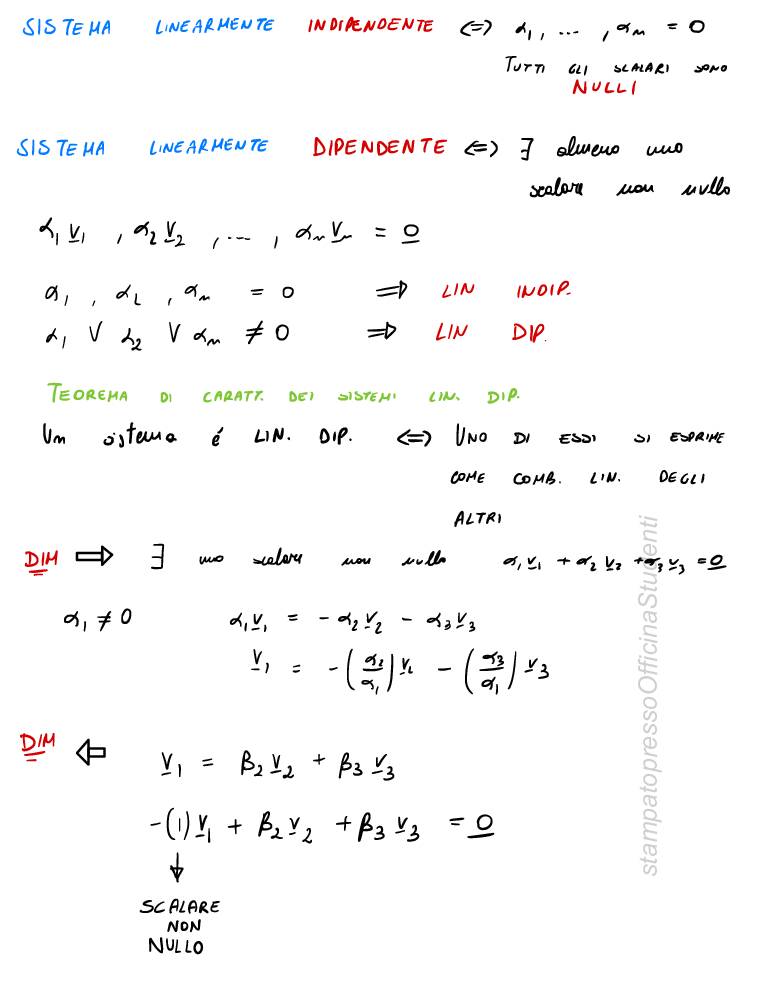 SISTEMA LINEARMENTE INDIPENDENTE <=> α₁, ..., αₙ = 0
TUTTI GLI SCALARI SONO
NULLI
SISTEMA LINEARMENTE DIPENDENTE <=> ∃ almeno uno
scalare non nullo
α₁v₁, α₂v₂, ..., αₙvₙ = 0
α₁, α₂, αₙ = 0 => LIN INDIP.
α₁ ∨ α₂ ∨ αₙ ≠ 0 => LIN DIP.
TEOREMA DI CARATT. DEI SISTEMI LIN. DIP.
Un sistema é LIN. DIP. <=> UNO DI ESSI SI ESPRIME
COME COMB. LIN. DEGLI
ALTRI
DIM ⇒ ∃ uno scalare non nullo α₁v₁ + α₂v₂ + α₃v₃ = 0
α₁ ≠ 0 α₁v₁ = - α₂v₂ - α₃v₃
v₁ = -(α₂/α₁)v₂ - (α₃/α₁)v₃
DIM ⇐ v₁ = β₂v₂ + β₃v₃
-(1)v₁ + β₂v₂ + β₃v₃ = 0
↓
SCALARE
NON
NULLO
stampatopressoOfficinaStudenti